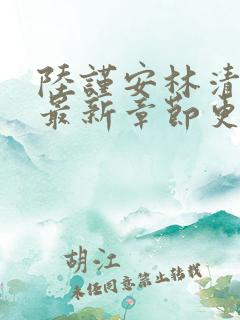 陸謹安林清
最新章節更
胡江
未經同意禁止轉載